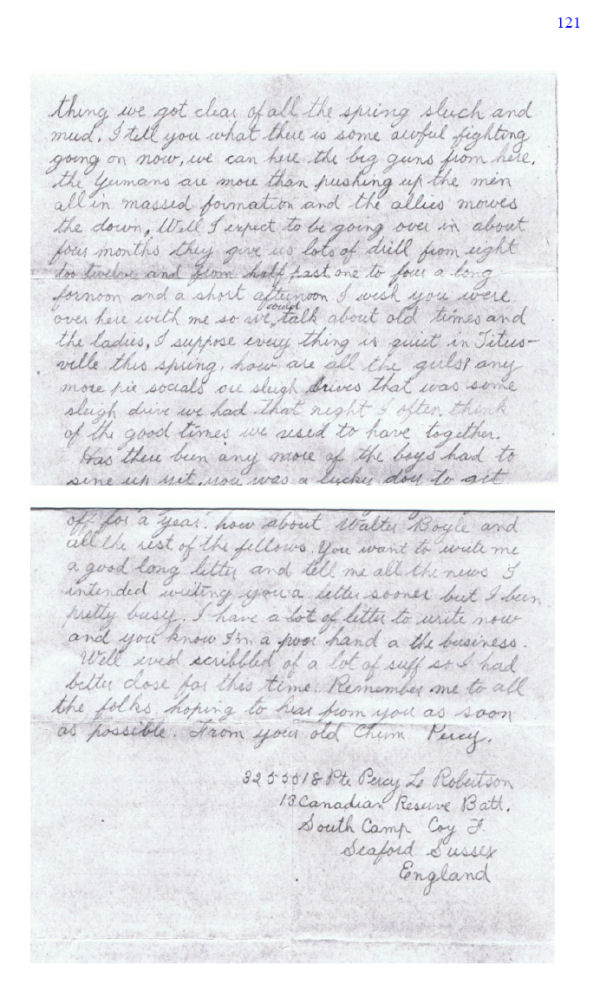 121
thing we got clear of all the spring sluch and
mud. I tell you what there is some awful fighting
going on now, we can here the big guns from here.
the Yumans are more than pushing up the men
all in massed formation and the allies mowes
the down, Well I expect to be going over in about
four months they give us lots of drill from eight
too twelve and from half past one to four a long
fornoon and a short afternoon I wish you were
over here with me so we could talk about old times and
the ladies, I suppose every thing is quiet in Titus-
ville this spring, how are all the girls? any
more pie socials or sleigh drives that was some
sleigh drive we had that night I often think
of the good times we used to have together.
Has there been any more of the boys had to
sine up yit, you was a lucky doy to git
off for a year. how about Walter Boyle and
all the rest of the fellows. You want to write me
a good long letter and tell me all the news I
intended writing you a letter sooner but I been
pretty busy. I have a lot of letter to write now
and you know I'm a poor hand a the business.
Well scribbled of a lot of suff so I had
better close for this time. Remember me to all
the folks hoping to hear from you as soon
as possible. From your old Chum Percy.
3255518 Pte Percy L. Robertson
13 Canadian Reserve Batt.
South Camp Coy F.
Seaford Sussex
England